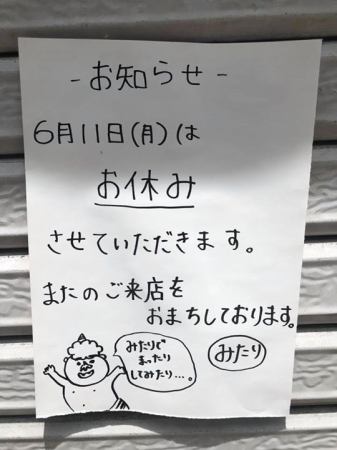 - お知らせ -
6月11日(月)は
お休み
させていただきます。
またのご来店を
おまちしております。
みたりで
まったり
してみたり…。
みたり